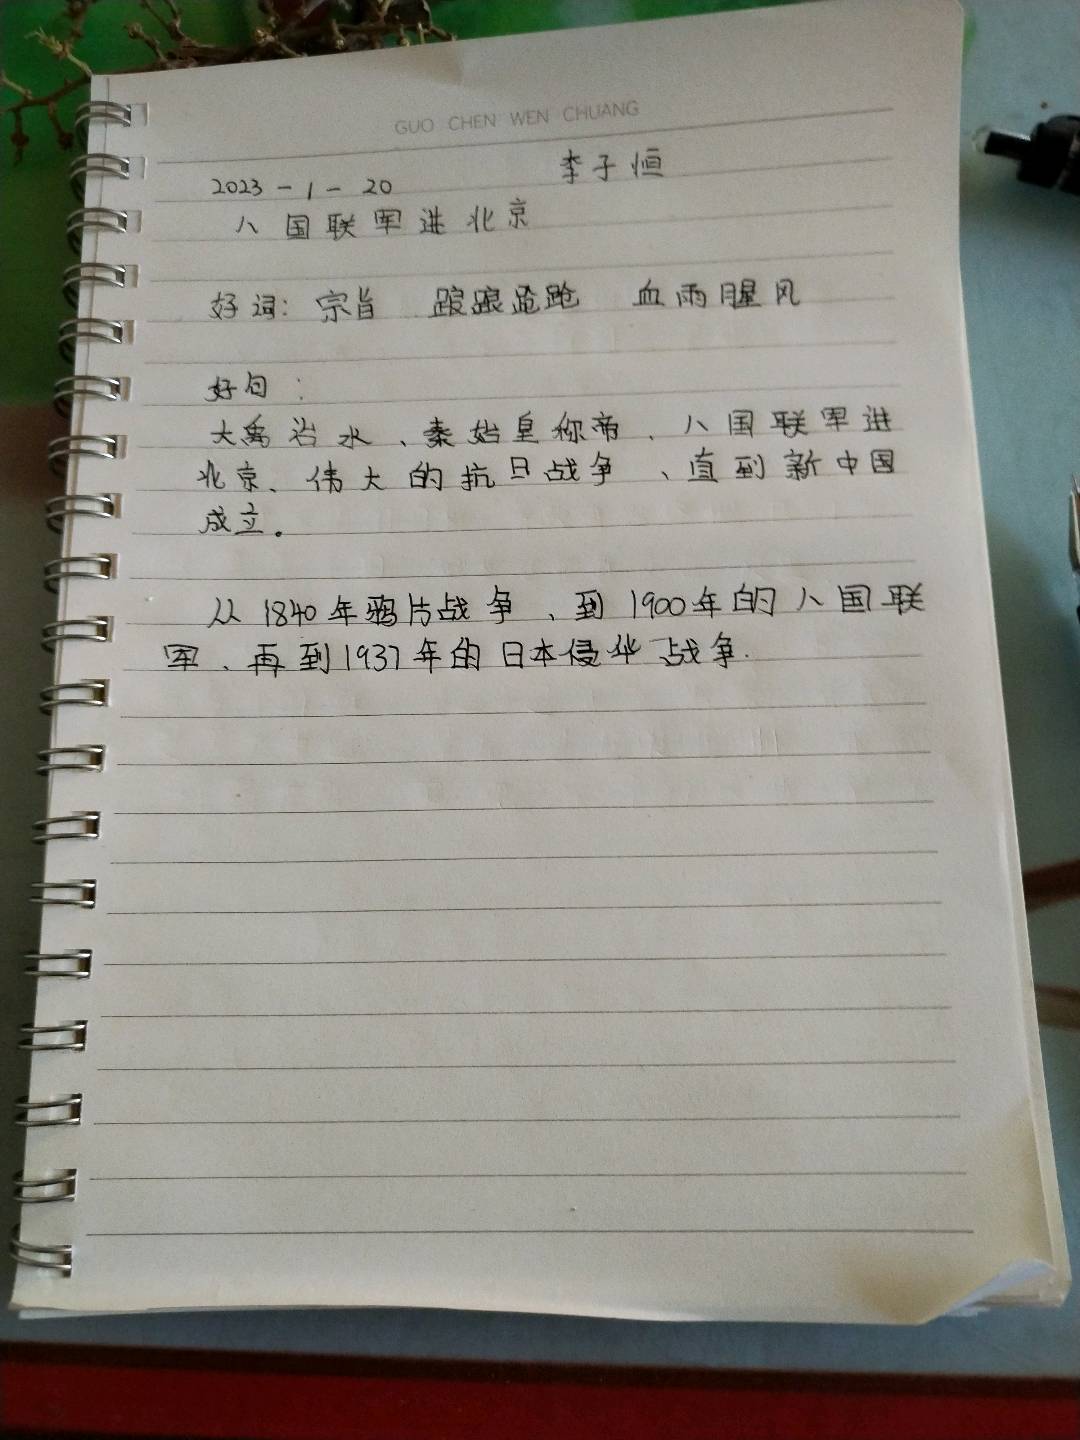 GUO CHEN WEN CHUANG
李子恒
2023-1-20
八国联军进北京
好词: 宗旨 踉踉跄跄 血雨腥风
好句:
大禹治水、秦始皇称帝、八国联军进
北京、伟大的抗日战争、直到新中国
成立。
从1840年鸦片战争、到1900年的八国联
军、再到1937年的日本侵华战争.